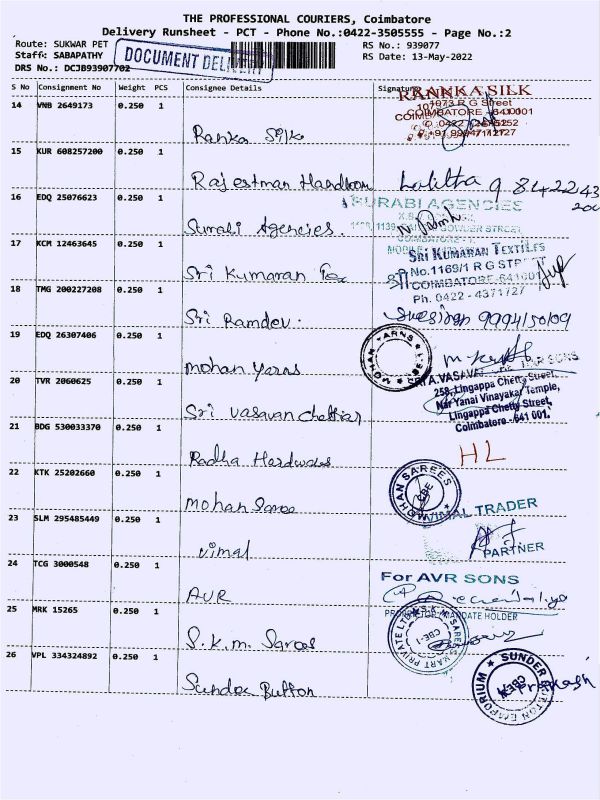 THE PROFESSIONAL COURIERS, Coimbatore
Delivery Runsheet - PCT - Phone No.:0422-3505555 - Page No.:2
Route: SUKWAR PET
RS No.: 939077
Staff: SABAPATHY
RS Date: 13-May-2022
DRS No.: DCJB93907702
DOCUMENT DELIVERY
S No Consignment No Weight PCS Consignee Details Signature
14 VNB 2649173 0.250 1
RANNKA SILK
1073 R G Street
COIMBATORE - 641001
Ranka Silk
15 KUR 608257200 0.250 1
Rajestman Handloom Lalitha 9 8422 43
16 EDQ 25076623 0.250 1
SURABI AGENCIES
Surabi Agencies.
17 KCM 12463645 0.250 1
SRI KUMARAN TEXTILES
No.1169/1 R G STREET
COIMBATORE-641001
Ph. 0422 - 4371727
Sri Kumaran Tex
18 TMG 200227208 0.250 1
Sri Ramdev.
19 EDQ 26307406 0.250 1
MOHAN YARNS
Mohan Yarns
20 TVR 2060625 0.250 1
A.VASAVAN CHETTIAR SONS
258, Lingappa Chetty Street,
Nar Yanai Vinayakar Temple,
Lingappa Chetty Street,
Coimbatore - 641 001.
Sri Vasavan Chettiar
21 BDG 530033370 0.250 1
Radha Hardwares HL
22 KTK 25202660 0.250 1
MOHAN SAREES
CBE
Mohan Saree
23 SLM 295485449 0.250 1
VIMAL TRADER
PARTNER
Vimal
24 TCG 3000548 0.250 1
For AVR SONS
AVR
PROPRIETOR/MANDATE HOLDER
25 MRK 15265 0.250 1
S.K.M. Sarees
26 VPL 334324892 0.250 1
SUNDER BUTTON EMPORIUM
Sunder Button Prakash